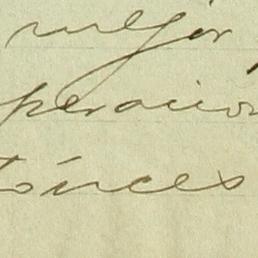 mejor,
peracion
tónces